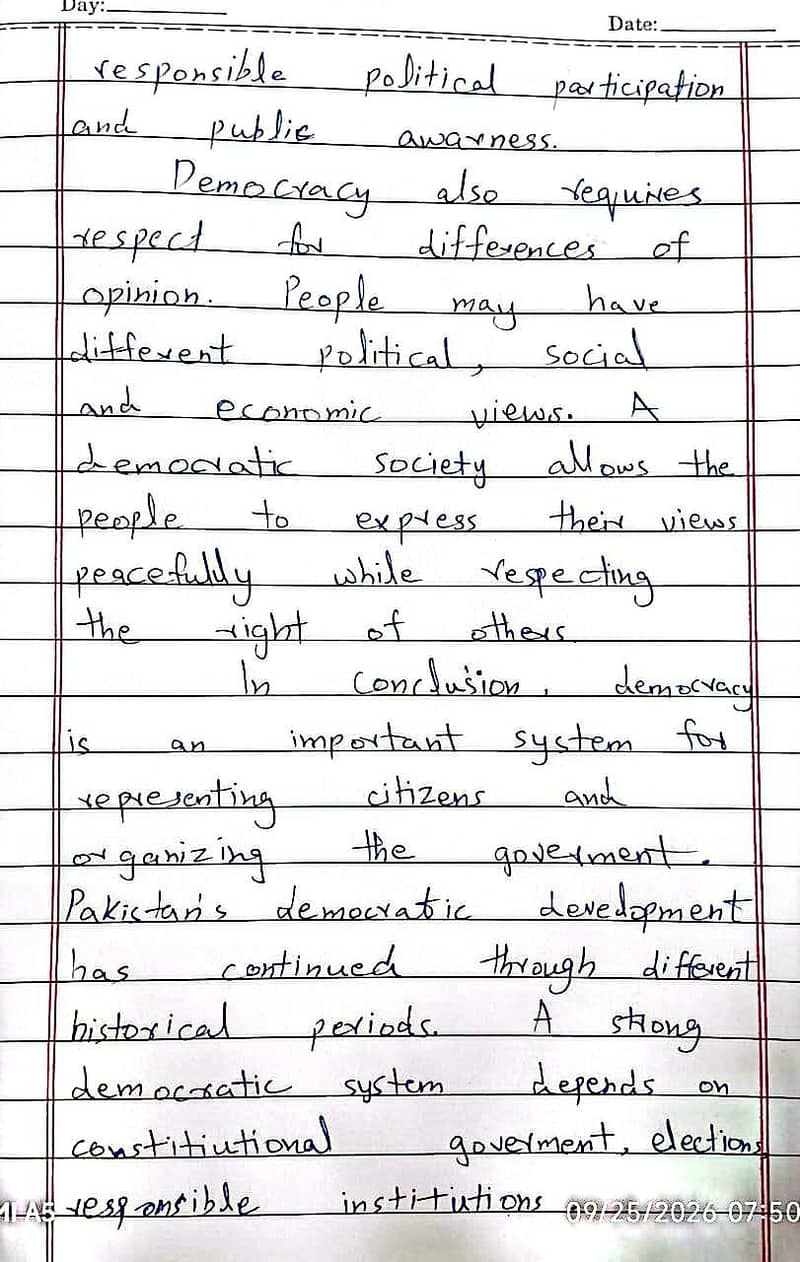 Day:
Date:
responsible political participation
and public awarness.
Democracy also requires
respect for differences of
opinion. People may have
different political, social
and economic views. A
democratic society allows the
people to express their views
peacefully while respecting
the right of others
In conclusion, democracy
is an important system for
representing citizens and
organizing the goverment.
Pakistan's democratic development
has continued through different
historical periods. A strong
democratic system depends on
constitiutional goverment, elections
responsible institiutions
09/25/2026 07:50